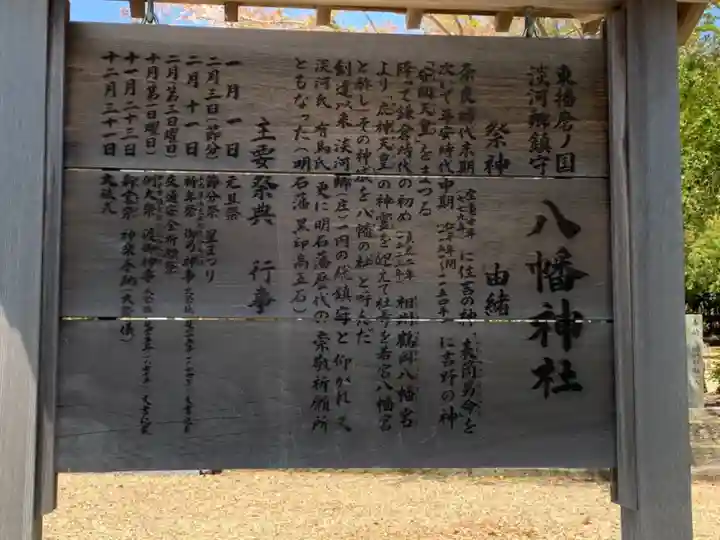 東播磨ノ国
淡河郷鎮守
八幡神社
祭神 由緒
奈良時代末期(宝亀十年 七七九年)に住吉の神 表筒男命を
次いで平安時代中期 に吉野の神
安閑天皇をまつる
降って鎌倉時代の初め 相州鶴岡八幡宮
より応神天皇の神霊を迎えて社号を若宮八幡宮
と称しその神域を八幡の社と呼んだ
創造以来淡河郷(庄)一円の総鎮守と仰がれ又
淡河氏 有馬氏 更に明石藩歴代の崇敬祈願所
ともなった(明石藩 黒印高五石)
主要祭典 行事
一月一日 元旦祭
二月三日(節分) 節分祭 星まつり
二月十一日 祈年祭 御弓神事
二月(第三日曜日) 交通安全祈願祭
十月(第一日曜日) 例大祭 渡御神事
十一月二十三日 新嘗祭 神楽奉納
十二月三十一日 大祓式